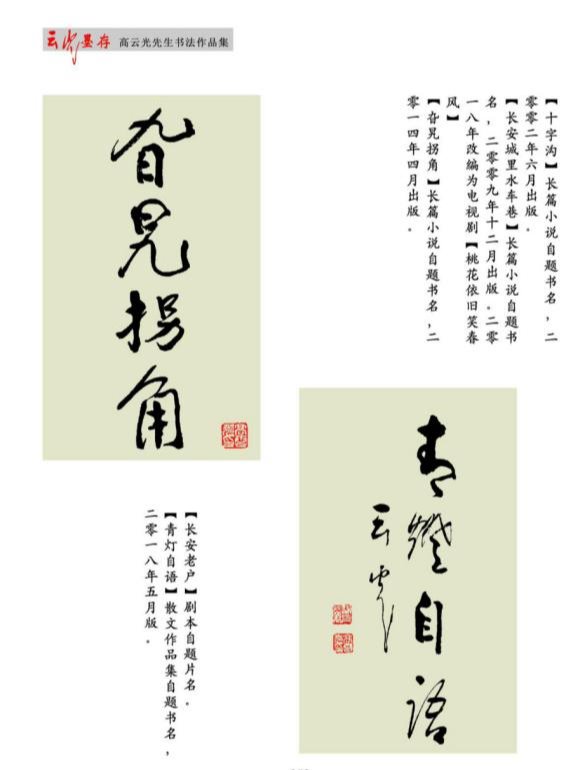 云光墨存 高云光先生书法作品集
【十字沟】长篇小说自题书名，二
零零二年六月出版。
【长安城里水车巷】长篇小说自题书
名，二零零九年十二月出版。二零
一八年改编为电视剧【桃花依旧笑春
风】
【旮旯拐角】长篇小说自题书名，二
零一四年四月出版。
旮旯拐角
青燈自語
云光
【长安老户】剧本自题片名。
【青灯自语】散文作品集自题书名，
二零一八年五月版。